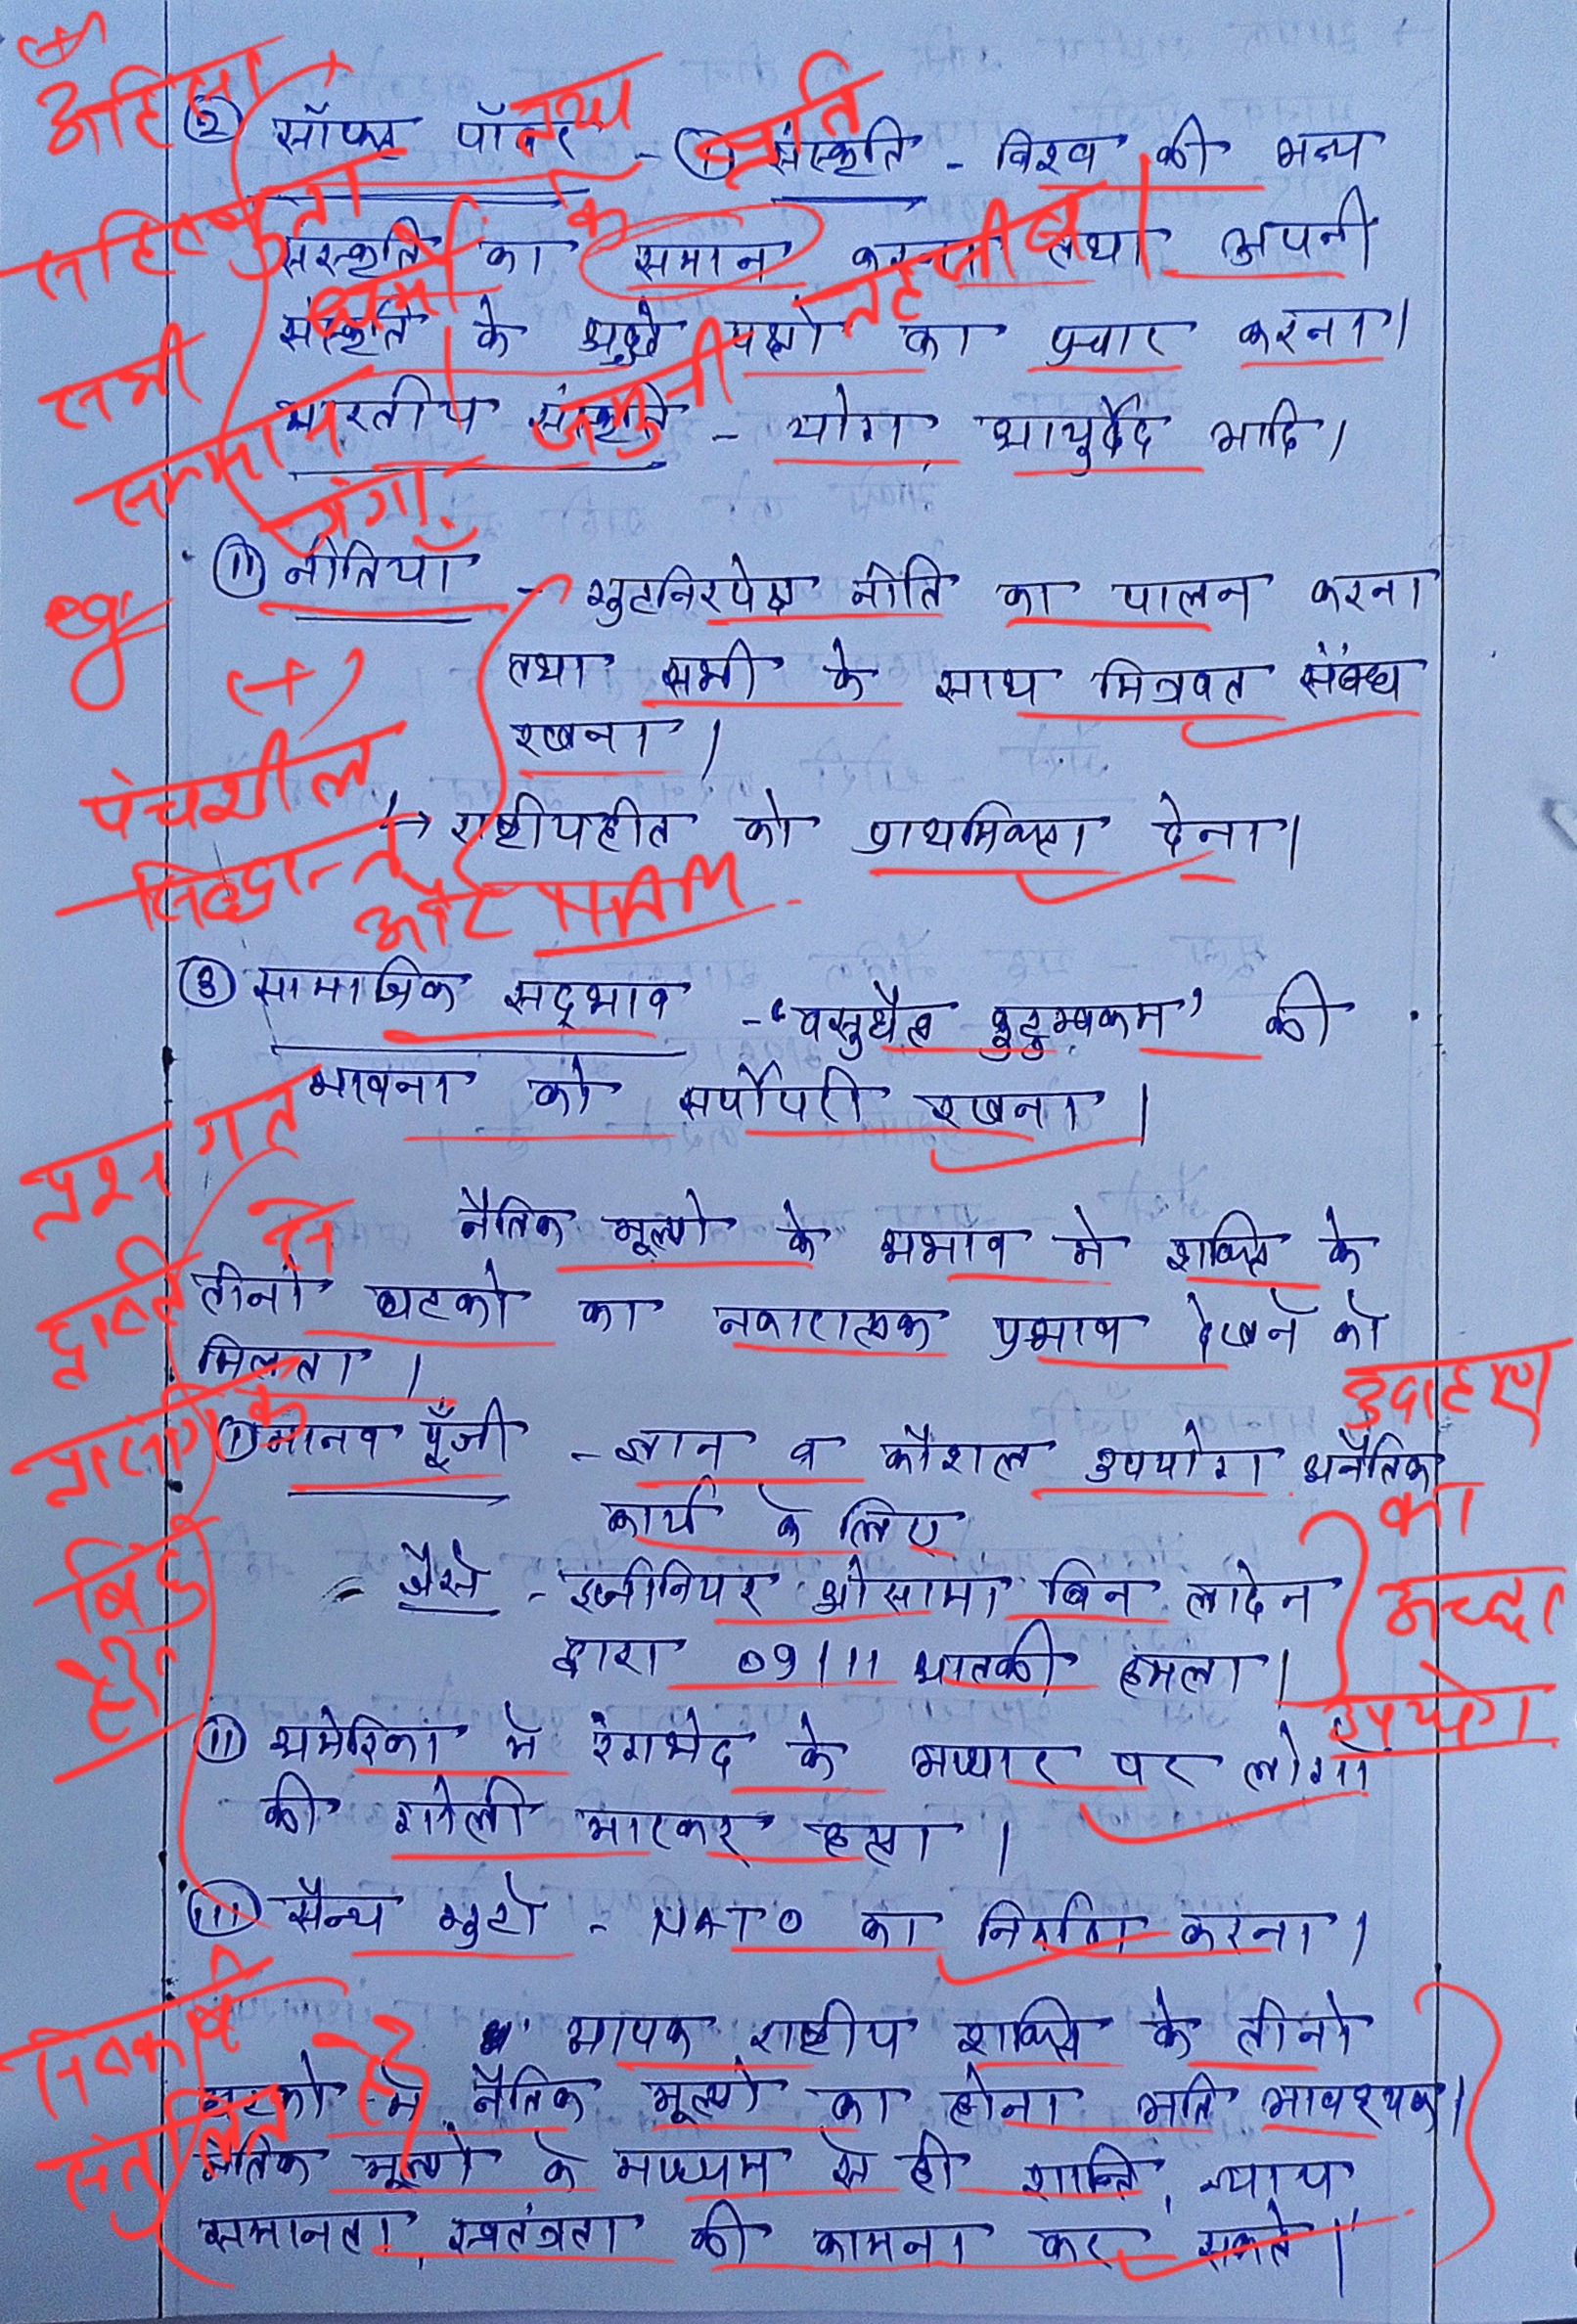 (+)
अहिंसा
सहिष्णुता
सभी
धर्मों के
सम्मान
गंगा-जमुनी
तहजीब।
② सॉफ्ट पॉवर - ① संस्कृति - विश्व की अन्य
संस्कृति का समान करना तथा अपनी
संस्कृति के अच्छे पक्षो का प्रचार करना।
भारतीय संस्कृति - योग, आयुर्वेद आदि।
(+)
पंचशील
सिद्धान्त
और
ⅱ नीतियाँ - गुटनिरपेक्ष नीति का पालन करना
तथा सभी के साथ मित्रवत संबंध
रखना।
↳ राष्ट्रीयहीत को प्राथमिकता देना।
③ सामाजिक सद्भाव - 'वसुधैव कुटुम्बकम' की
भावना को सर्पोपरी रखना।
प्रश्नगत
दृष्टि से
प्रासंगिक
बिंदु
है।
नैतिक मूल्यो के अभाव मे शक्ति के
तीनो घटको का नकारात्मक प्रभाव देखने को
मिलता।
① मानव पूँजी - ज्ञान व कौशल उपयोग अनैतिक
कार्य के लिए
- जैसे - इंजीनियर ओसामा बिन लादेन
द्वारा 09/11 आतकी हमला।
उदाहरण
का
अच्छा
उपयोग
ⅱ अमेरिका मे रंगभेद के आधार पर लोगो
की गोली मारकर हत्या।
ⅲ सैन्य गुटो - NATO का निर्माण करना।
निष्कर्ष
संतुलित है
व्यापक राष्ट्रीय शक्ति के तीनो
घटको मे नैतिक मूल्यो का होना अति आवश्यक।
नैतिक मूल्यो के माध्यम से ही शान्ति, न्याय
समानता, स्वतंत्रता की कामना कर सकते।